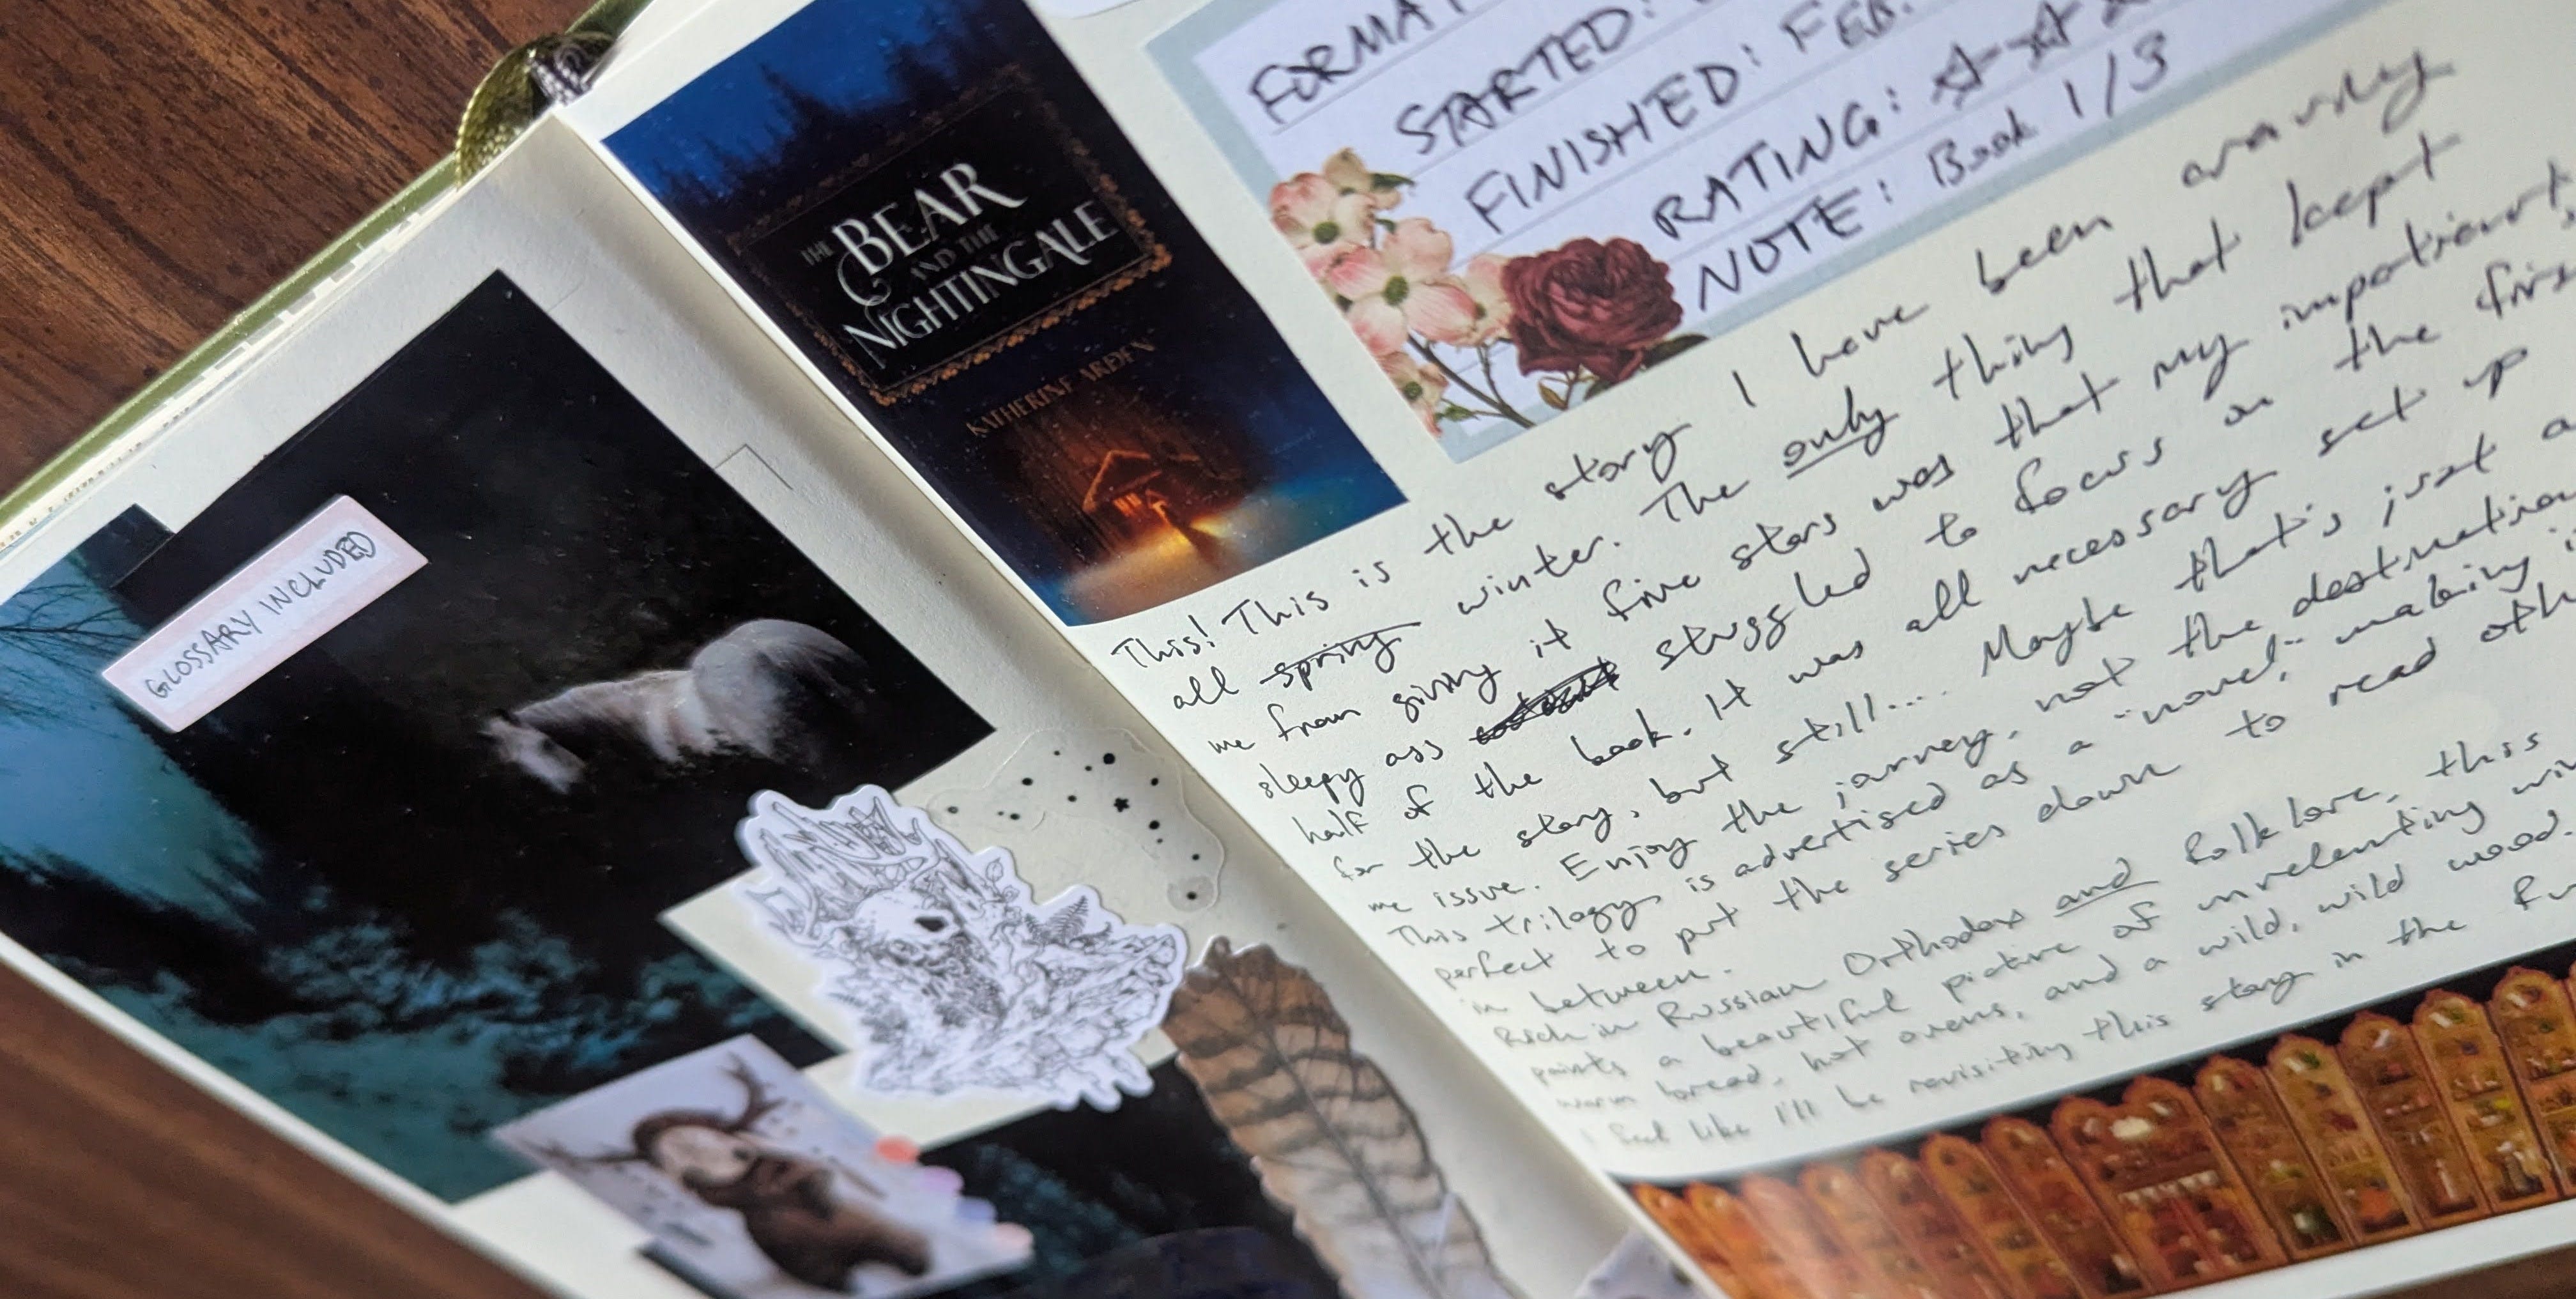 GLOSSARY INCLUDED
THE
BEAR
AND THE
NIGHTINGALE
KATHERINE ARDEN
FORMAT
STARTED:
FINISHED: FEB.
RATING: ☆ ☆
NOTE: Book 1/3
This! This is the story I have been craving
all spring winter. The only thing that kept
me from giving it five stars was that my impatient,
sleepy ass struggled to focus on the firs
half of the book. It was all necessary set up
for the story, but still... Maybe that's just a
me issue. Enjoy the journey, not the destination
This trilogy is advertised as a "novel," making i
perfect to put the series down to read oth
in between.
Rich in Russian Orthodox and folklore, this
paints a beautiful picture of unrelenting win
warm bread, hot ovens, and a wild, wild wood.
I feel like I'll be revisiting this story in the fu